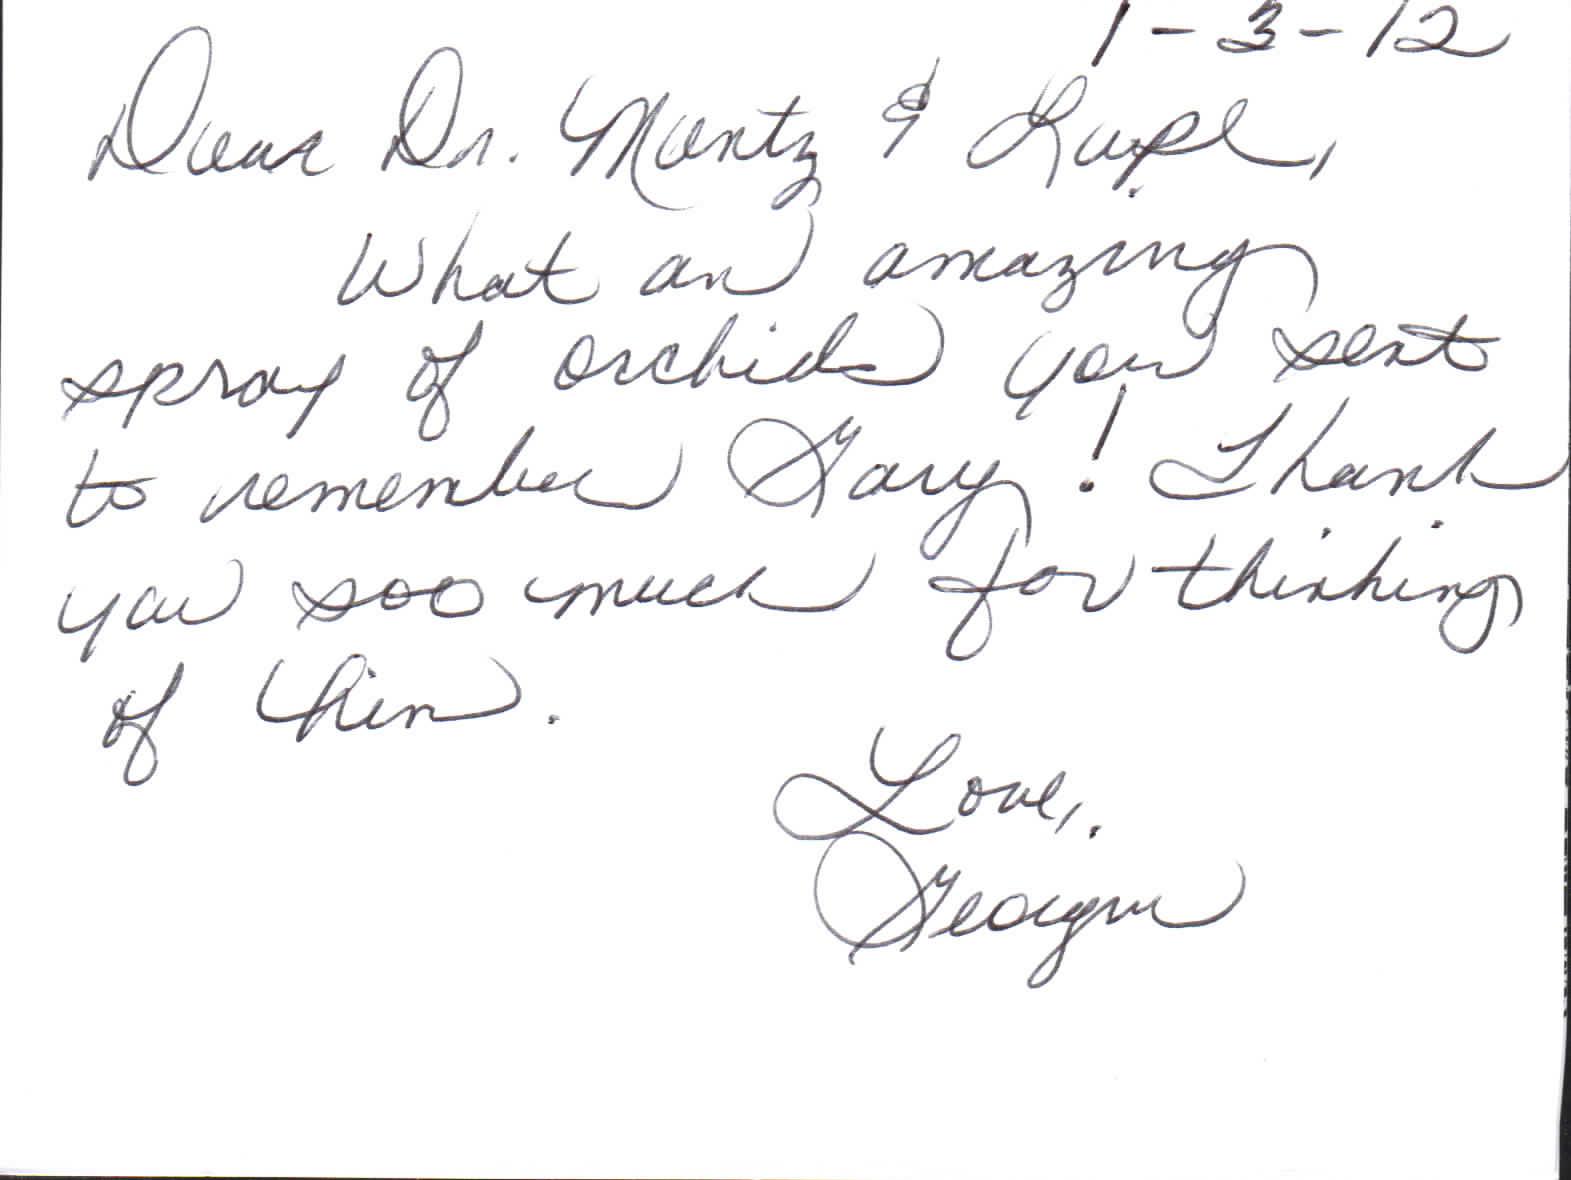 1-3-12
Dear Dr. Mantz & Lupe,
What an amazing
spray of orchids you sent
to remember Gary! Thank
you soo much for thinking
of him.
Love,